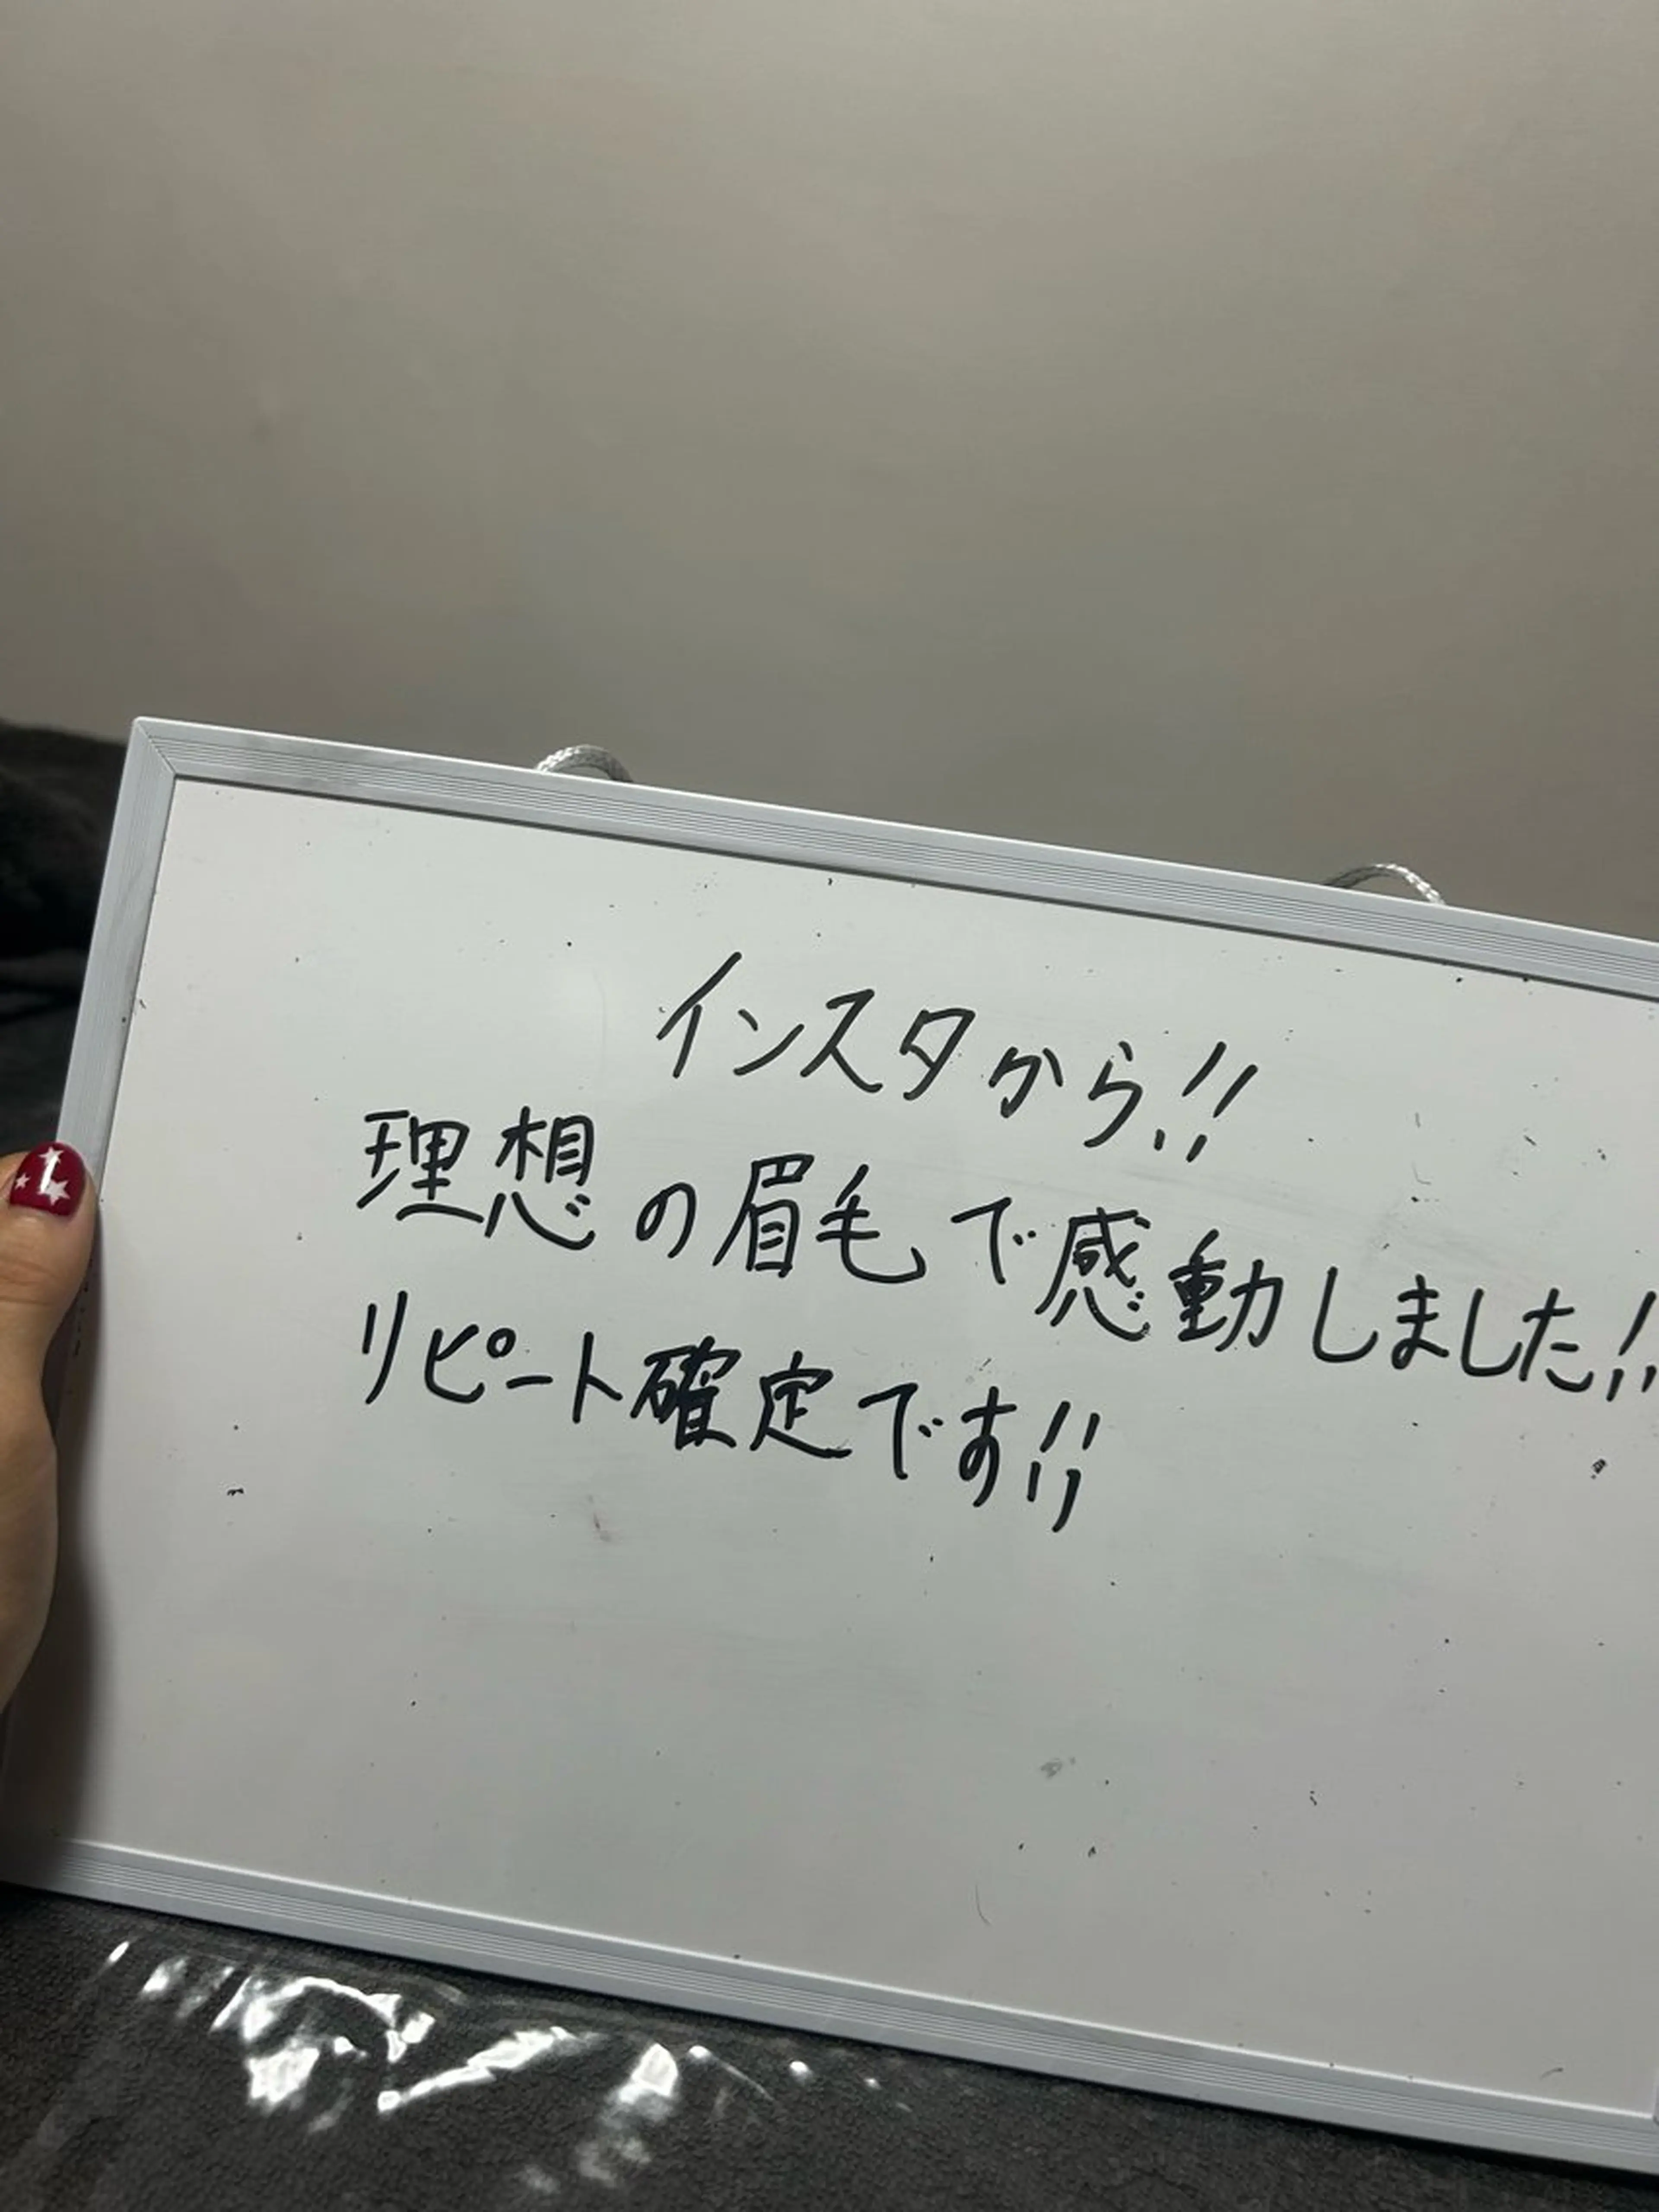 インスタから!!
理想の眉毛で感動しました!!
リピート確定です!!